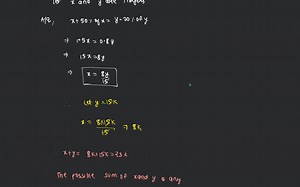 let x and y are integers
ATQ, x+50% of x = y-20% of y
⇒ 1.5x = 0.8y
⇒ 15x = 8y
⇒ x = 8y/15
Let y = 15k
x = 8×15k/15 ⇒ 8k
x+y = 8k+15k = 23k
The possible sum of x and y is any